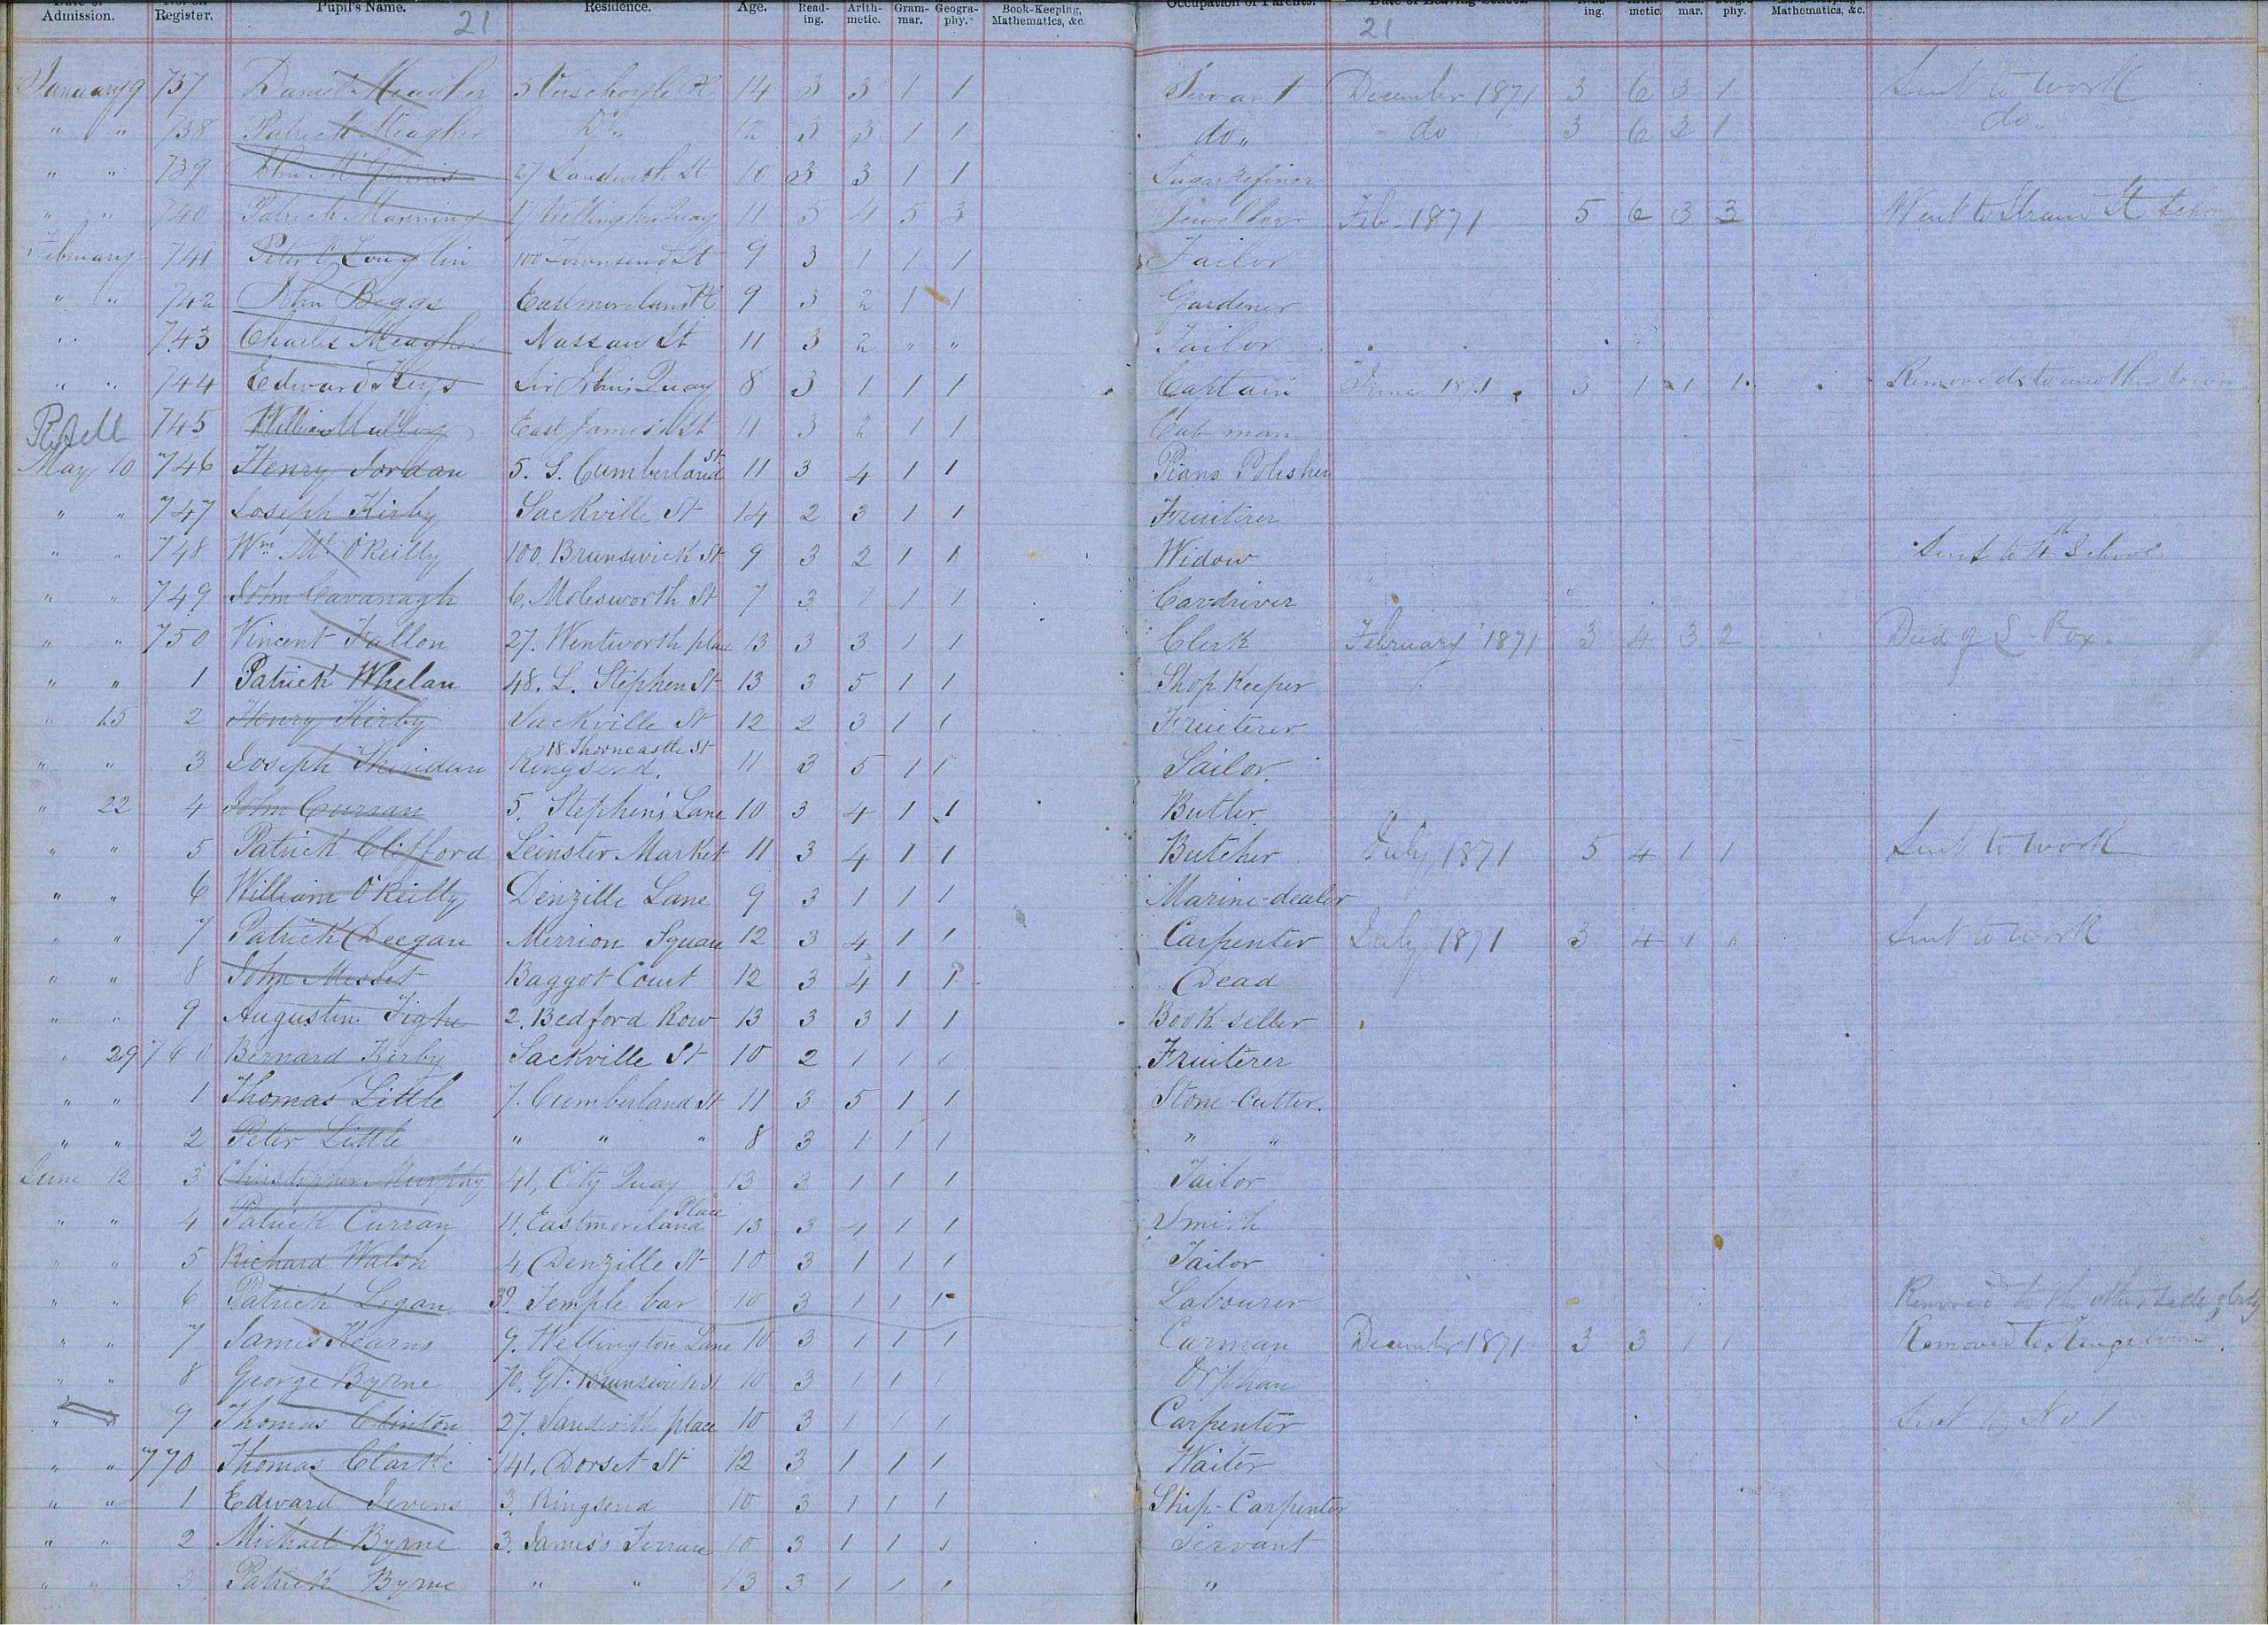 Date of Admission. No. on Register. Pupil's Name. Residence. Age. Reading. Arithmetic. Grammar. Geography. Book-Keeping, Mathematics, &c. Occupation of Parents. Date of Leaving School. Reading. Arithmetic. Grammar. Geography. Book-Keeping, Mathematics, &c.
21 21
January 9 737 Daniel Meagher 5 Verschoyle Pl 14 3 3 1 1 Servant December 1871 3 6 3 1 Sent to work
" " 738 Patrick Meagher Do. 12 3 3 1 1 do " do 3 6 3 1 do
" " 739 John 27 Sandwith St 10 3 3 1 1 Sugar Refiner
" " 740 Patrick Manning Wellington Quay 11 5 4 5 3 Jeweller Feb. 1871 5 6 3 3 Went to Strand St School
February 741 Peter O'Loughlin 100 Townsend St 9 3 1 1 1 Tailor
" " 742 John Beggs Eastmoreland Pl 9 3 2 1 1 Gardener
" " 743 Charles Meagher Nassau St 11 3 2 " " Tailor
" " 744 Edward Keys Sir John's Quay 8 3 1 1 1 Captain June 1871 3 1 1 1 Removed to another town
745 William East James's St 11 3 2 1 1 Cab man
May 10 746 Henry Jordan 5. S. Cumberland St 11 3 4 1 1 Piano Polisher
" " 747 Joseph Kirby Sackville St 14 2 3 1 1 Fruiterer
" " 748 Wm. O'Reilly 100. Brunswick St 9 3 2 1 1 Widow Sent to School
" " 749 John Cavanagh 6, Molesworth St 7 3 1 1 1 Cardriver
" " 750 Vincent Fallon 27. Wentworth place 13 3 3 1 1 Clerk February 1871 3 4 3 2 Died of S. Pox
" " 1 Patrick Whelan 48. L. Stephen St 13 3 5 1 1 Shop Keeper
" 15 2 Henry Kirby Sackville St 12 2 3 1 1 Fruiterer
" " 3 Joseph Sheridan 18 Thorncastle St Ringsend. 11 3 5 1 1 Sailor.
" 22 4 John Curran 5. Stephen's Lane 10 3 4 1 1 Butler.
" " 5 Patrick Clifford Leinster Market 11 3 4 1 1 Butcher July 1871 5 4 1 1 Sent to work
" " 6 William O'Reilly Denzille Lane 9 3 1 1 1 Marine-dealer
" " 7 Patrick Deegan Merrion Square 12 3 4 1 1 Carpenter July 1871 3 4 1 1 Sent to work
" " 8 John Messet Baggot Court 12 3 4 1 1 Dead
" " 9 Augustin Tighe 2. Bedford Row 13 3 3 1 1 Book-seller
" 29 760 Bernard Kirby Sackville St 10 2 1 1 1 Fruiterer
" " 1 Thomas Little 7. Cumberland St 11 3 5 1 1 Stone-Cutter.
" " 2 Peter Little " " " 8 3 1 1 1 " "
June 12 3 Christopher Murphy 41, City Quay 13 3 1 1 1 Tailor
" " 4 Patrick Curran 11, Eastmoreland Place 13 3 4 1 1 Smith
" " 5 Richard Walsh 4 Denzille St 10 3 1 1 1 Tailor
" " 6 Patrick Logan 39. Temple bar 10 3 1 1 1 Labourer Removed to the other side of City
" " 7 James Kearns 9. Wellington Lane 10 3 1 1 1 Carman December 1871 3 3 1 1 Removed to Kingstown
" " 8 George Byrne 70. Gt. Brunswick St 10 3 1 1 1 Orphan
" " 9 Thomas Clinton 27. Sandwith place 10 3 1 1 1 Carpenter Sent to No 1
" " 770 Thomas Clarke 141, Dorset St 12 3 1 1 1 Waiter
" " 1 Edward 3. Ringsend 10 3 1 1 1 Ship-Carpenter
" " 2 Michael Byrne 3. James's Terrace 10 3 1 1 1 Servant
" " 3 Patrick Byrne " " 13 3 1 1 1 "